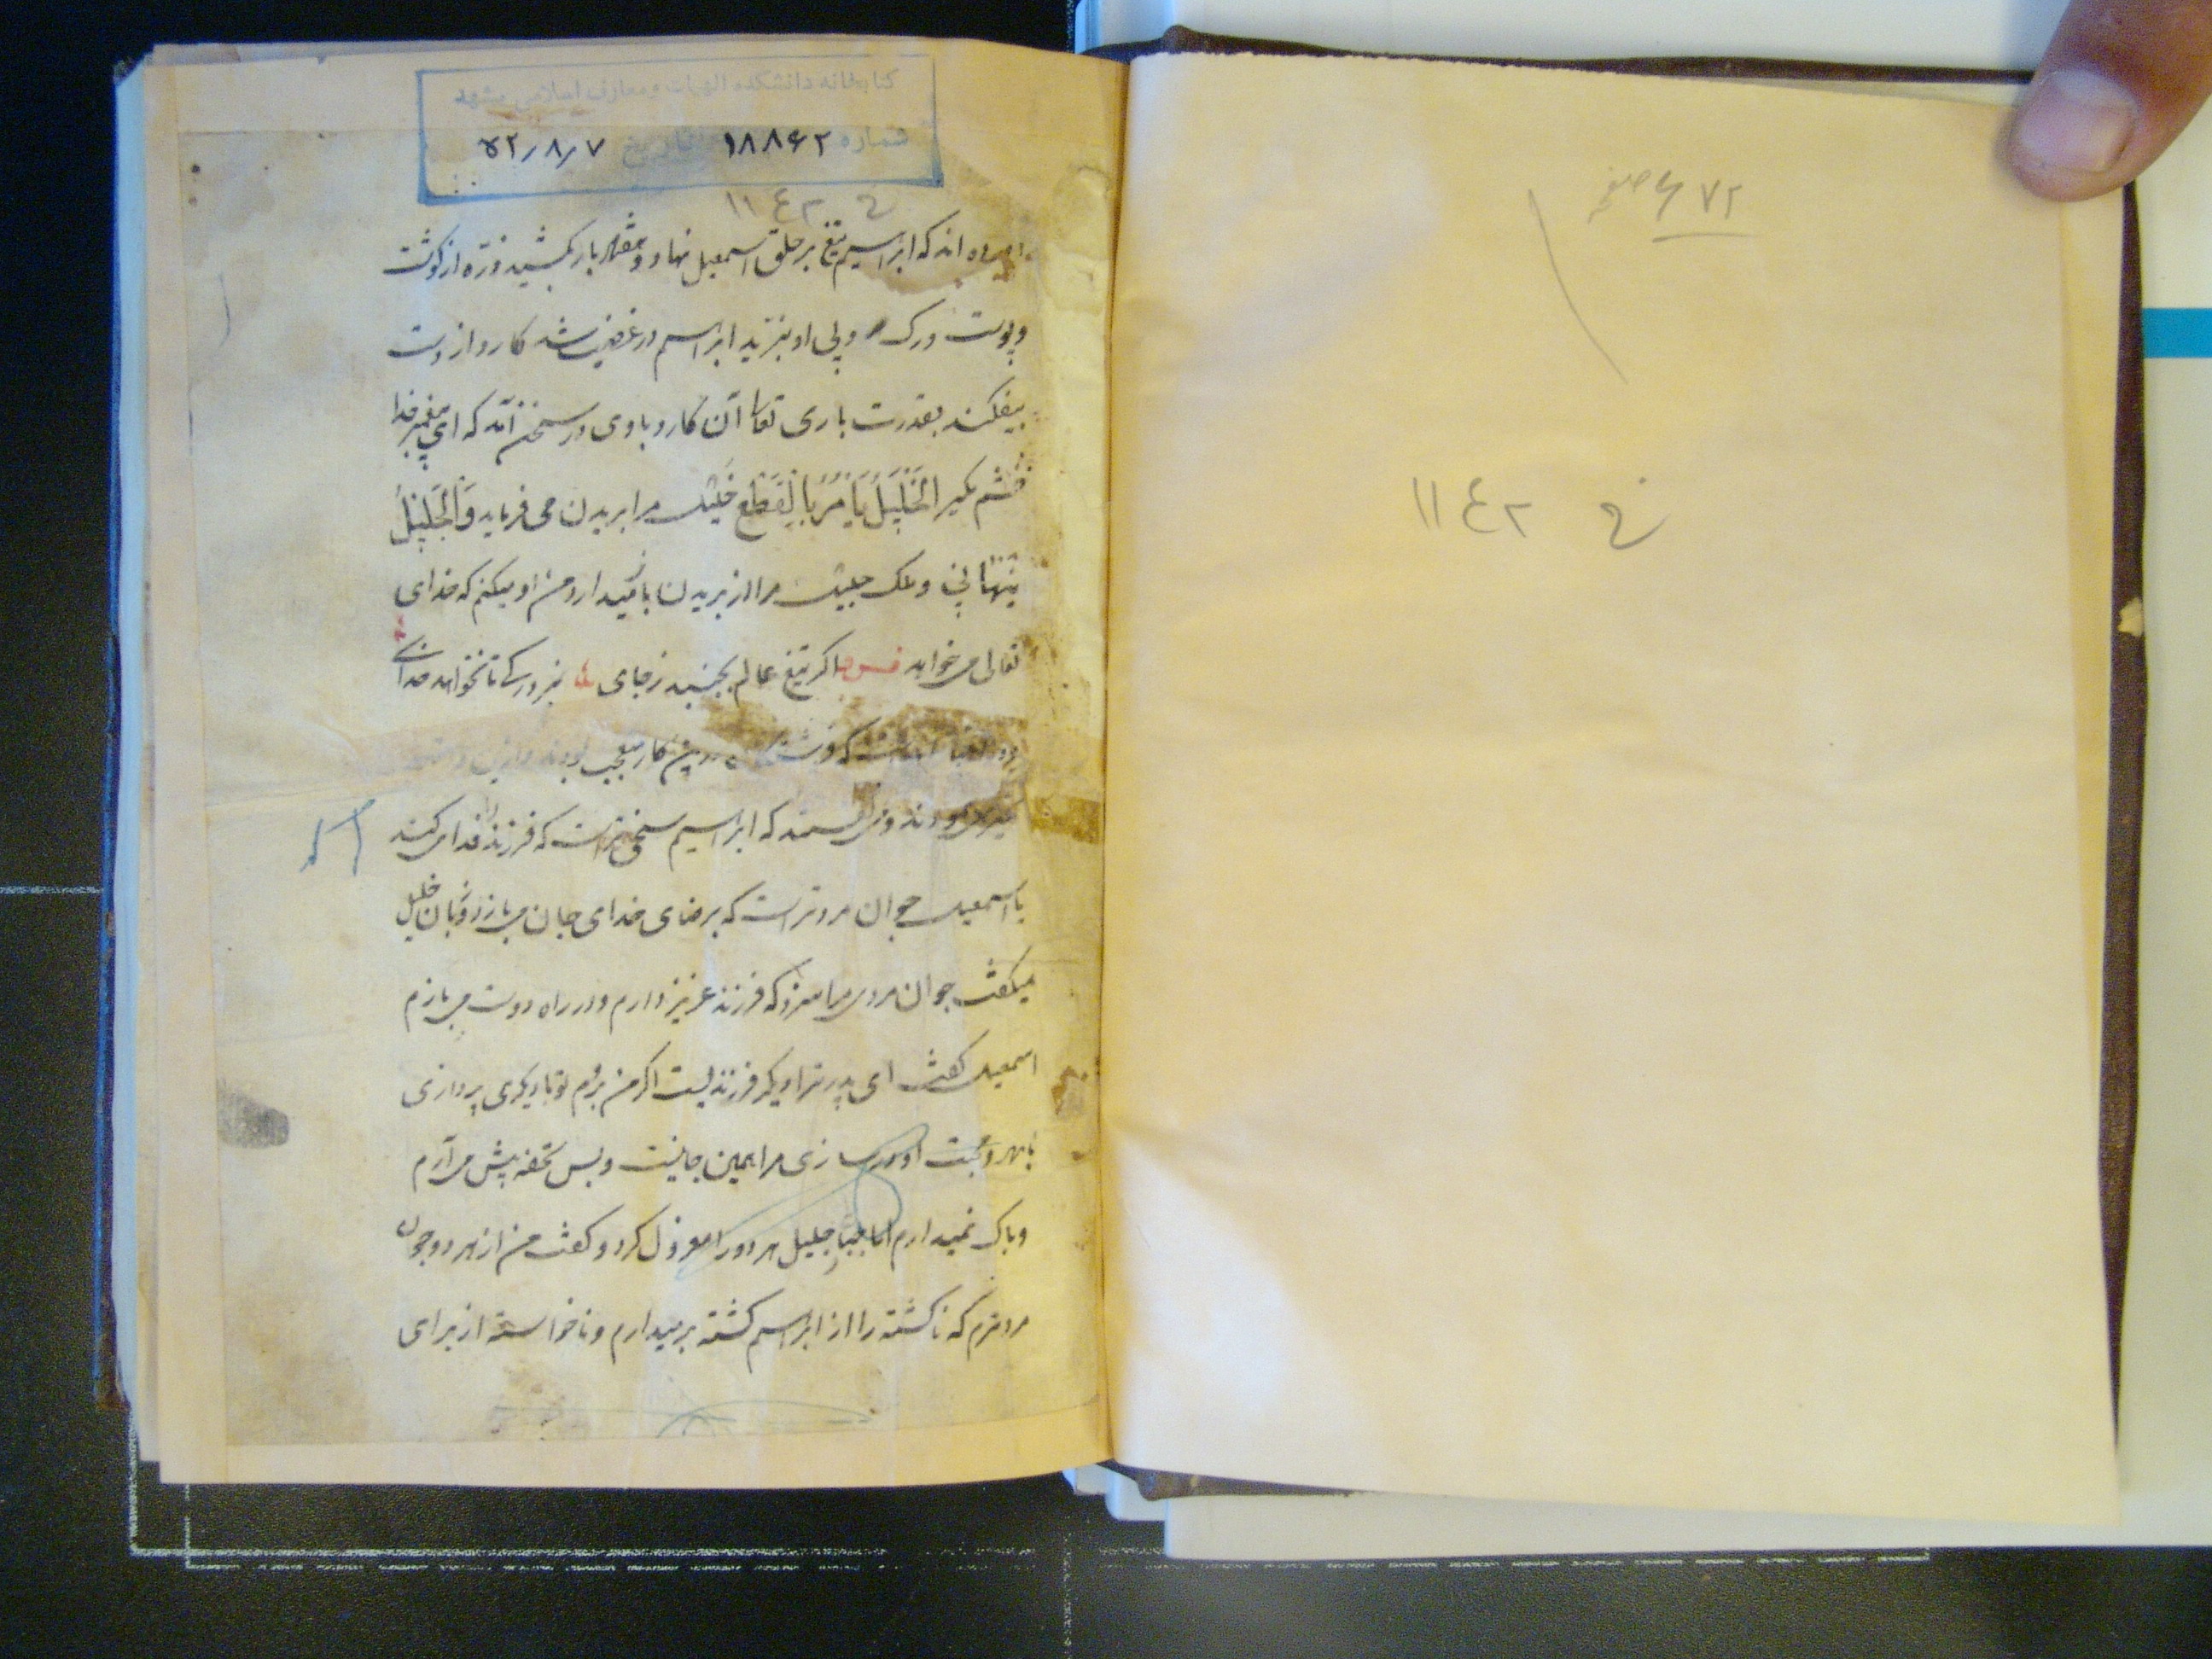 ۶۷۲ صفحه
خ ۱۱۴۲
کتابخانه دانشکده الهیات و معارف اسلامی مشهد
شماره ۱۸۸۶۲ تاریخ ۵۲/۸/۷
خ ۱۱۴۲
اند که ابراهیم تیغ بر حلق اسمعیل نهاد و هفتاد بار بکشید ذره از کوشت
و پوست و رک و پی او نبرید ابراهیم در غضب شد کارد از دست
بیفکند بقدرت باری تعالی آن کارد با وی در سخن آمد که ای پیغمبر خدا
خشم مگیر اَلْخَلِیلُ یَأْمُرُ بِالْقَطْعِ خلیلت مرا بریدن می فرماید وَالْجَلِیلُ
یَنْهَانِی و ملک جلیلت مرا از بریدن باز میدارد من او میکنم که خدای
تعالی می خواهد اکر تیغ عالم بجنبد ز جای نبرد رکی تا نخواهد خدای
درین کار متعجب بودند
که ابراهیم سخی تر است که فرزند فدا می کند
یا اسمعیل جوان مردتر است که برضای خدای جان می بازد و خلیل
میکفت جوان مردی مرا سزد که فرزند عزیز دارم و در راه دوست می بازم
اسمعیل کفت ای پدر ترا دیکر فرزند است اکر من بروم تو با دیکری پردازی
سازی مرا همین جانیست و بس تحفه پیش می آرم
و باک نمیدارم اما جلیل هر دو را معزول کرد و کفت من از هر دو جوان
مردترم که ناکشته را از ابراهیم کشته برمیدارم و ناخواسته از برای